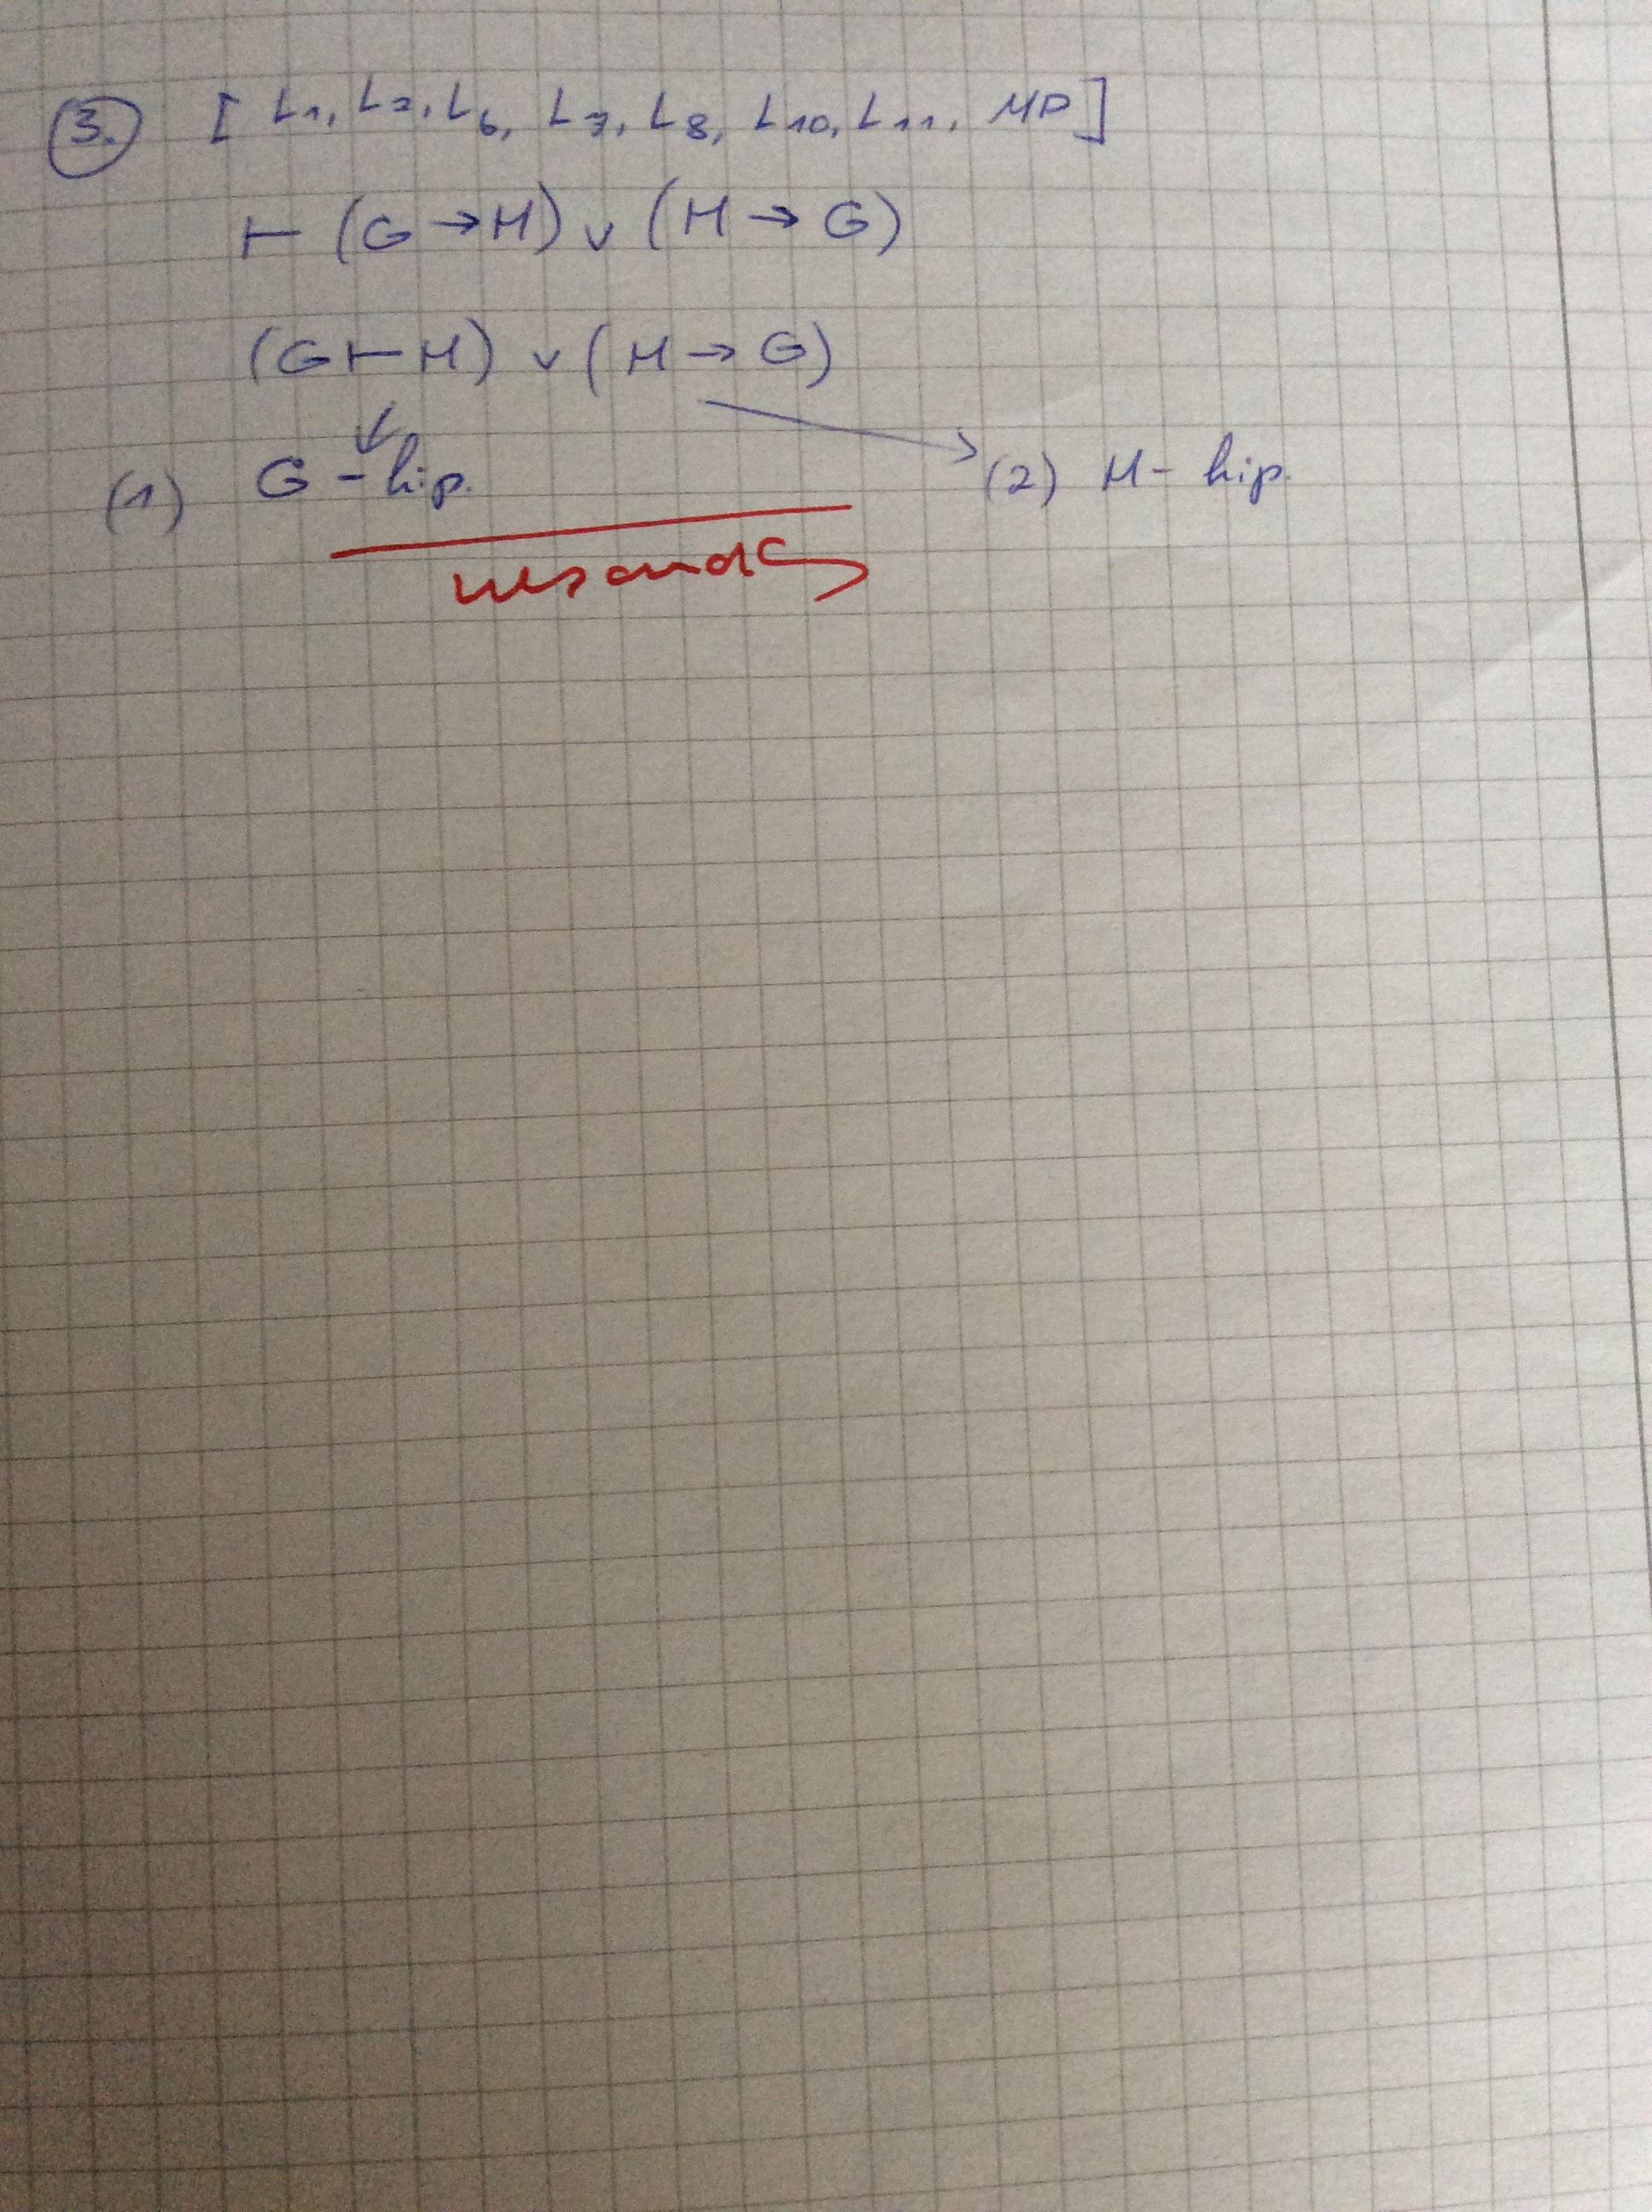 3. [ L₁, L₂, L₆, L₇, L₈, L₁₀, L₁₁, MP ]
⊢ (G → H) ∨ (H → G)
(G ⊢ H) ∨ (H → G)
(1) G - hip. (2) H - hip.